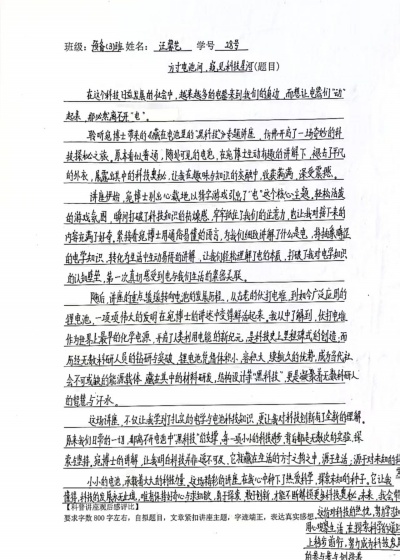 班级：预备(3)班 姓名： 汪馨悦 学号 28号
方寸电池间，窥见科技星河(题目)
在这个科技日益发展的社会中，越来越多的电器来到我们的身边，而想让电器们“动”
起来，那必然离不开“电”。
聆听宛博士带来的《藏在电池里的“黑科技”》专题讲座，仿佛开启了一场奇妙的科
技探秘之旅。原本看似普通，随处可见的电池，在宛博士生动有趣的讲解下，褪去了平凡
的外衣，展露出其中的科技奥秘，让我在趣味与知识的交融中，收获满满，深受震撼。
讲座伊始，宛博士别出心裁地以猜字游戏引出了“电”这个核心主题，轻松活泼
的游戏氛围，瞬间打破了科技知识的枯燥感，牢牢抓住了我们的注意力，也让我对接下来的
内容充满了好奇，紧接着宛博士用通俗易懂的语言，为我们细致讲解了什么是电，将抽象晦涩
的电学知识，转化为生活中生动易懂的讲解，让我们轻松理解了电的本质，打破了我对电学知识
的认知壁垒，第一次真切感受到电与我们生活的紧密关联。
随后，讲座的重点缓缓转向电池的发展历程，从古老的伏打电堆，到如今广泛应用的
锂电池，一项项伟大的发明在宛博士的讲述中变得鲜活起来，我从中了解到，伏打电堆
作为世界上最早的化学电源，开启了人类利用电能的新纪元，是科技史上里程碑式的创造；而
历经无数科研人员的钻研与突破，锂电池凭借体积小、容量大、续航久的优势，成为现代社
会不可或缺的能源载体，藏在其中的材料研发，结构设计等“黑科技”，更是凝聚着无数科研人
的智慧与汗水。
这场讲座，不仅让我学习了扎实的电学与电池科技知识，更让我对科技创新有了全新的理解。
原来我们日常的一切，都离不开电池中“黑科技”的支撑，每一项小小的科技进步，背后都是无数次的实验、探
索与坚持，宛博士的讲解，让我明白科技并非遥不可及，它就藏在生活的方寸之物中，源于生活；源于对未知的
小小的电池，承载着大大的科技能量，这场精彩的讲座，在我心中种下了热爱科学、探索未知的种子，它让我
懂得，科技的发展永无止境，唯有保持好奇心与求知欲，勇于探索，敢于创新，才能不断解锁更多科技奥秘，未来，我会带
【科普讲座观后感评比】
要求字数 800 字左右，自拟题目，文章紧扣讲座主题，字迹端正，表达真实感想，
这份对科技的热忱，努力学习
用心观察生活，在探索科学的道路
上砥砺前行，努力成为科技发展
的参与者与创造者。